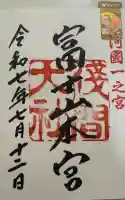 河國一之宮
富士本宮
淺間
大社
令和七年七月十二日